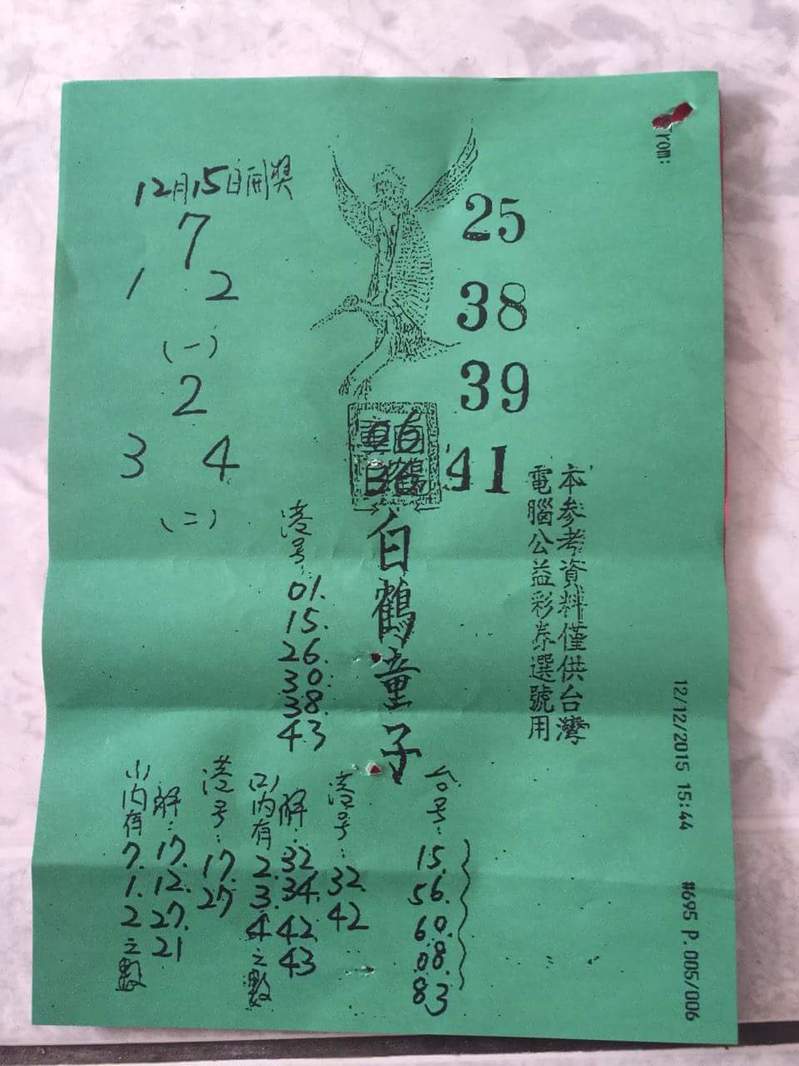 From:
12月15日開獎
7
1 2
(一)
2
3 4
(二)
25
38
39
41
本參考資料僅供台灣
電腦公益彩券選號用
白鶴童子
港号:
01.
15.
26.
30.
38.
43
台号:
15.
56.
60.
08.
83
港号:
32.
42
解:
32.
34.
42.
43
内有2.3.4之數
港号:
17.
27
解:
17.
12.
27.
21
内有7.1.2之數
12/12/2015 15:44 #695 P.005/006